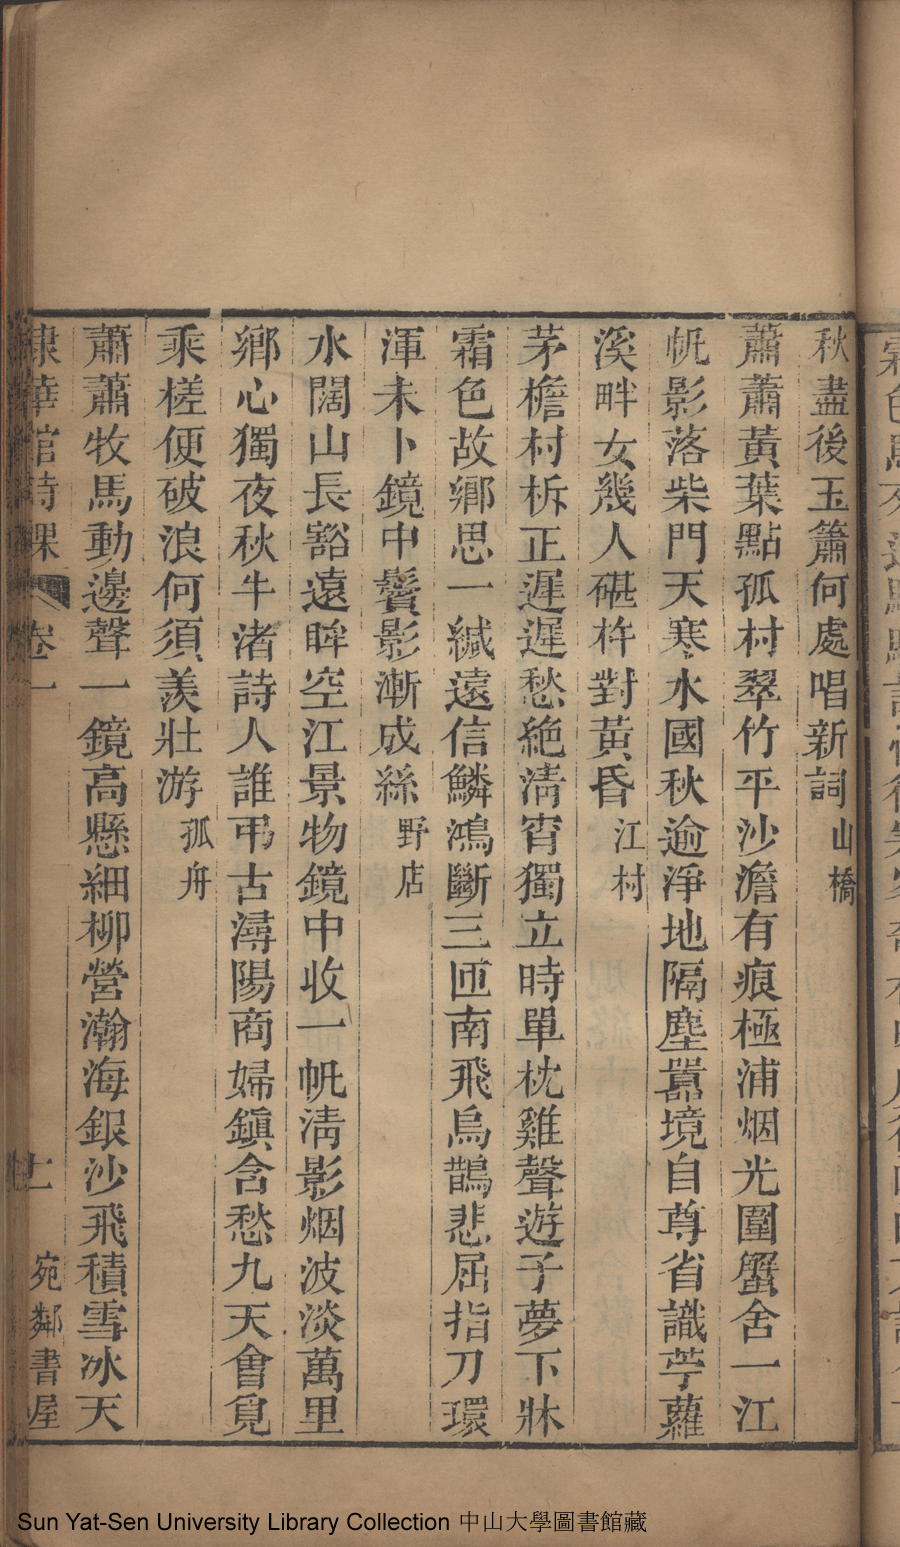 秋盡後玉簫何處唱新詞山橋
蕭蕭黃葉點孤村翠竹平沙澹有痕極浦烟光圍蟹舍一江
帆影落柴門天寒水國秋逾淨地隔塵囂境自尊省識苧蘿
溪畔女幾人碪杵對黃昏江村
茅檐村柝正遲遲愁絶淸宵獨立時單枕雞聲遊子夢下牀
霜色故鄉思一緘遠信鱗鴻斷三匝南飛烏鵲悲屈指刀環
渾未卜鏡中鬢影漸成絲野店
水闊山長豁遠眸空江景物鏡中收一帆淸影烟波淡萬里
鄉心獨夜秋牛渚詩人誰弔古潯陽商婦鎭含愁九天會見
乘槎便破浪何須羨壯游孤舟
蕭蕭牧馬動邊聲一鏡高懸細柳營瀚海銀沙飛積雪冰天
棣華館詩課 卷一 宛鄰書屋
Sun Yat-Sen University Library Collection 中山大學圖書館藏